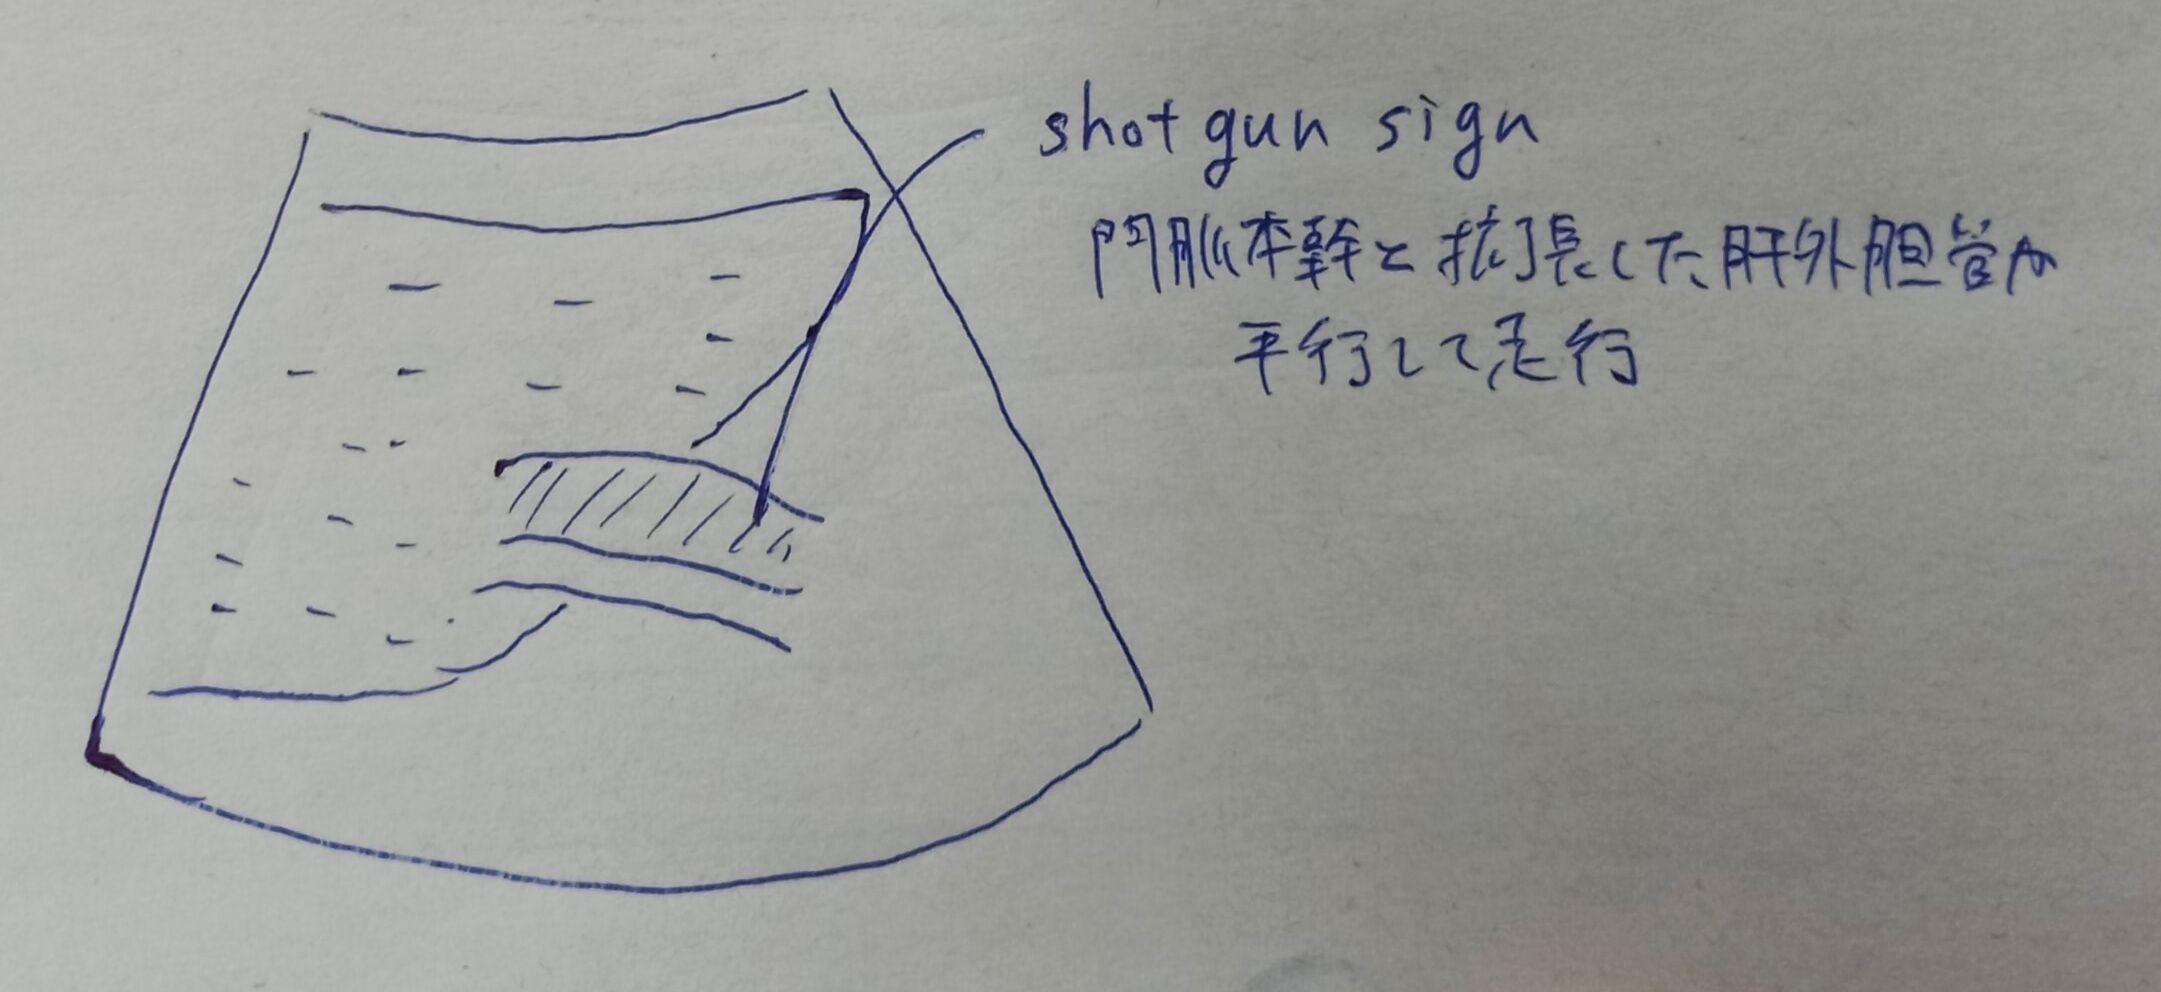 shotgun sign
門脈本幹と拡張した肝外胆管が
平行して走行